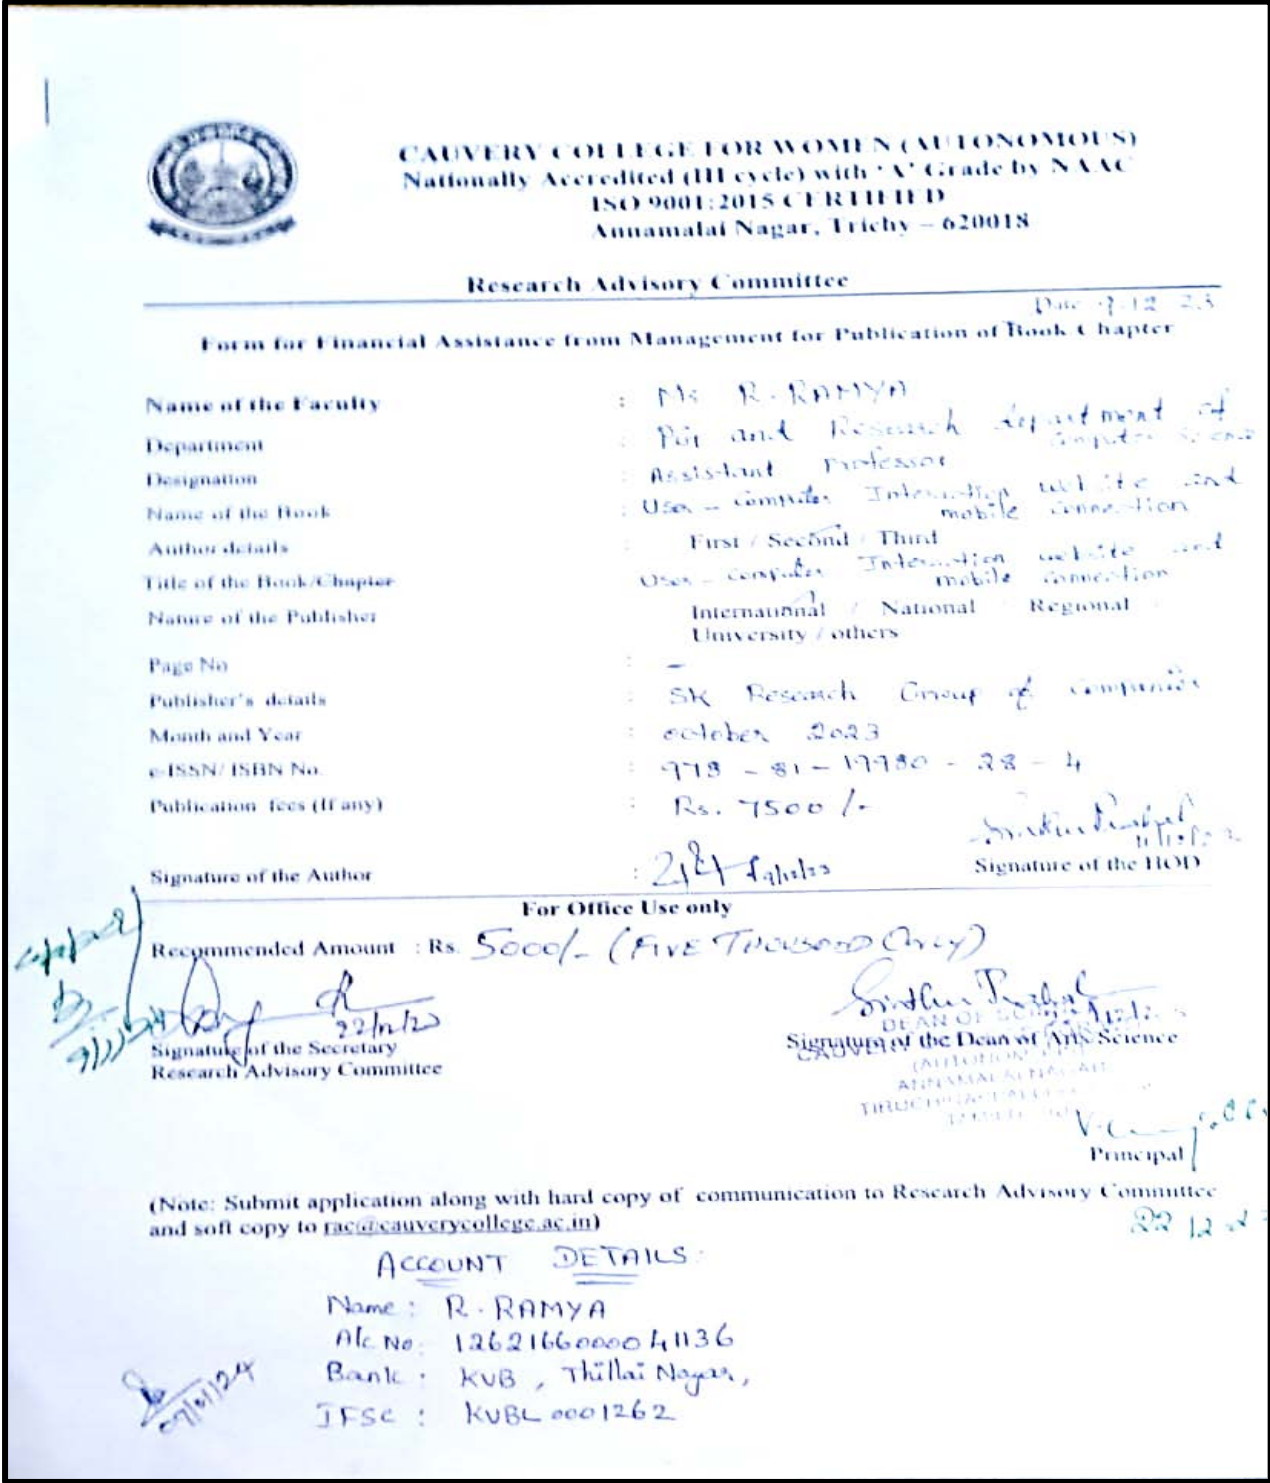 CAUVERY COLLEGE FOR WOMEN (AUTONOMOUS)
Nationally Accredited (III cycle) with 'A' Grade by NAAC
ISO 9001:2015 CERTIFIED
Annamalai Nagar, Trichy – 620018
Research Advisory Committee
Date 9.12.23
Form for Financial Assistance from Management for Publication of Book Chapter
Name of the Faculty : Ms R. RAMYA
Department : PG and Research department of Computer Science
Designation : Assistant Professor
Name of the Book : User – Computer Interaction website and mobile connection
Author details : First / Second / Third
Title of the Book/Chapter User – Computer Interaction website and mobile connection
Nature of the Publisher International / National Regional
University / others
Page No : –
Publisher's details : SK Research Group of Companies
Month and Year : october 2023
e-ISSN/ ISBN No. : 978 – 81 – 19980 - 28 – 4
Publication fees (If any) : Rs. 7500 /-
Signature of the Author :
Signature of the HOD
For Office Use only
Recommended Amount : Rs. 5000/- (FIVE THOUSAND ONLY)
22/12/23
Signature of the Secretary
Research Advisory Committee
DEAN OF
Signature of the Dean of Arts/Science
ANNAMALAI NAGAR
Principal
(Note: Submit application along with hard copy of communication to Research Advisory Committee
and soft copy to rac@cauverycollege.ac.in)
ACCOUNT DETAILS:
Name : R. RAMYA
A/c No: 1262166000041136
Bank : KVB , Thillai Nagar,
IFSC : KVBL0001262